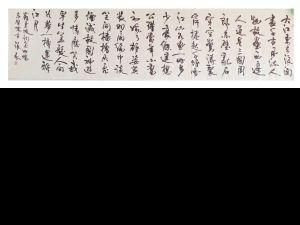 大江東去浪淘
盡千古風流人
物故壘西邊
人道是三國周
郎赤壁亂石
穿空驚濤裂
岸捲起千堆雪
江山如畫一時多
少豪傑遙想
公瑾當年小喬
初嫁了雄姿英
發羽扇綸巾談
笑間檣櫓灰飛
煙滅故國神遊
多情應笑我
早生華髮人間
江月